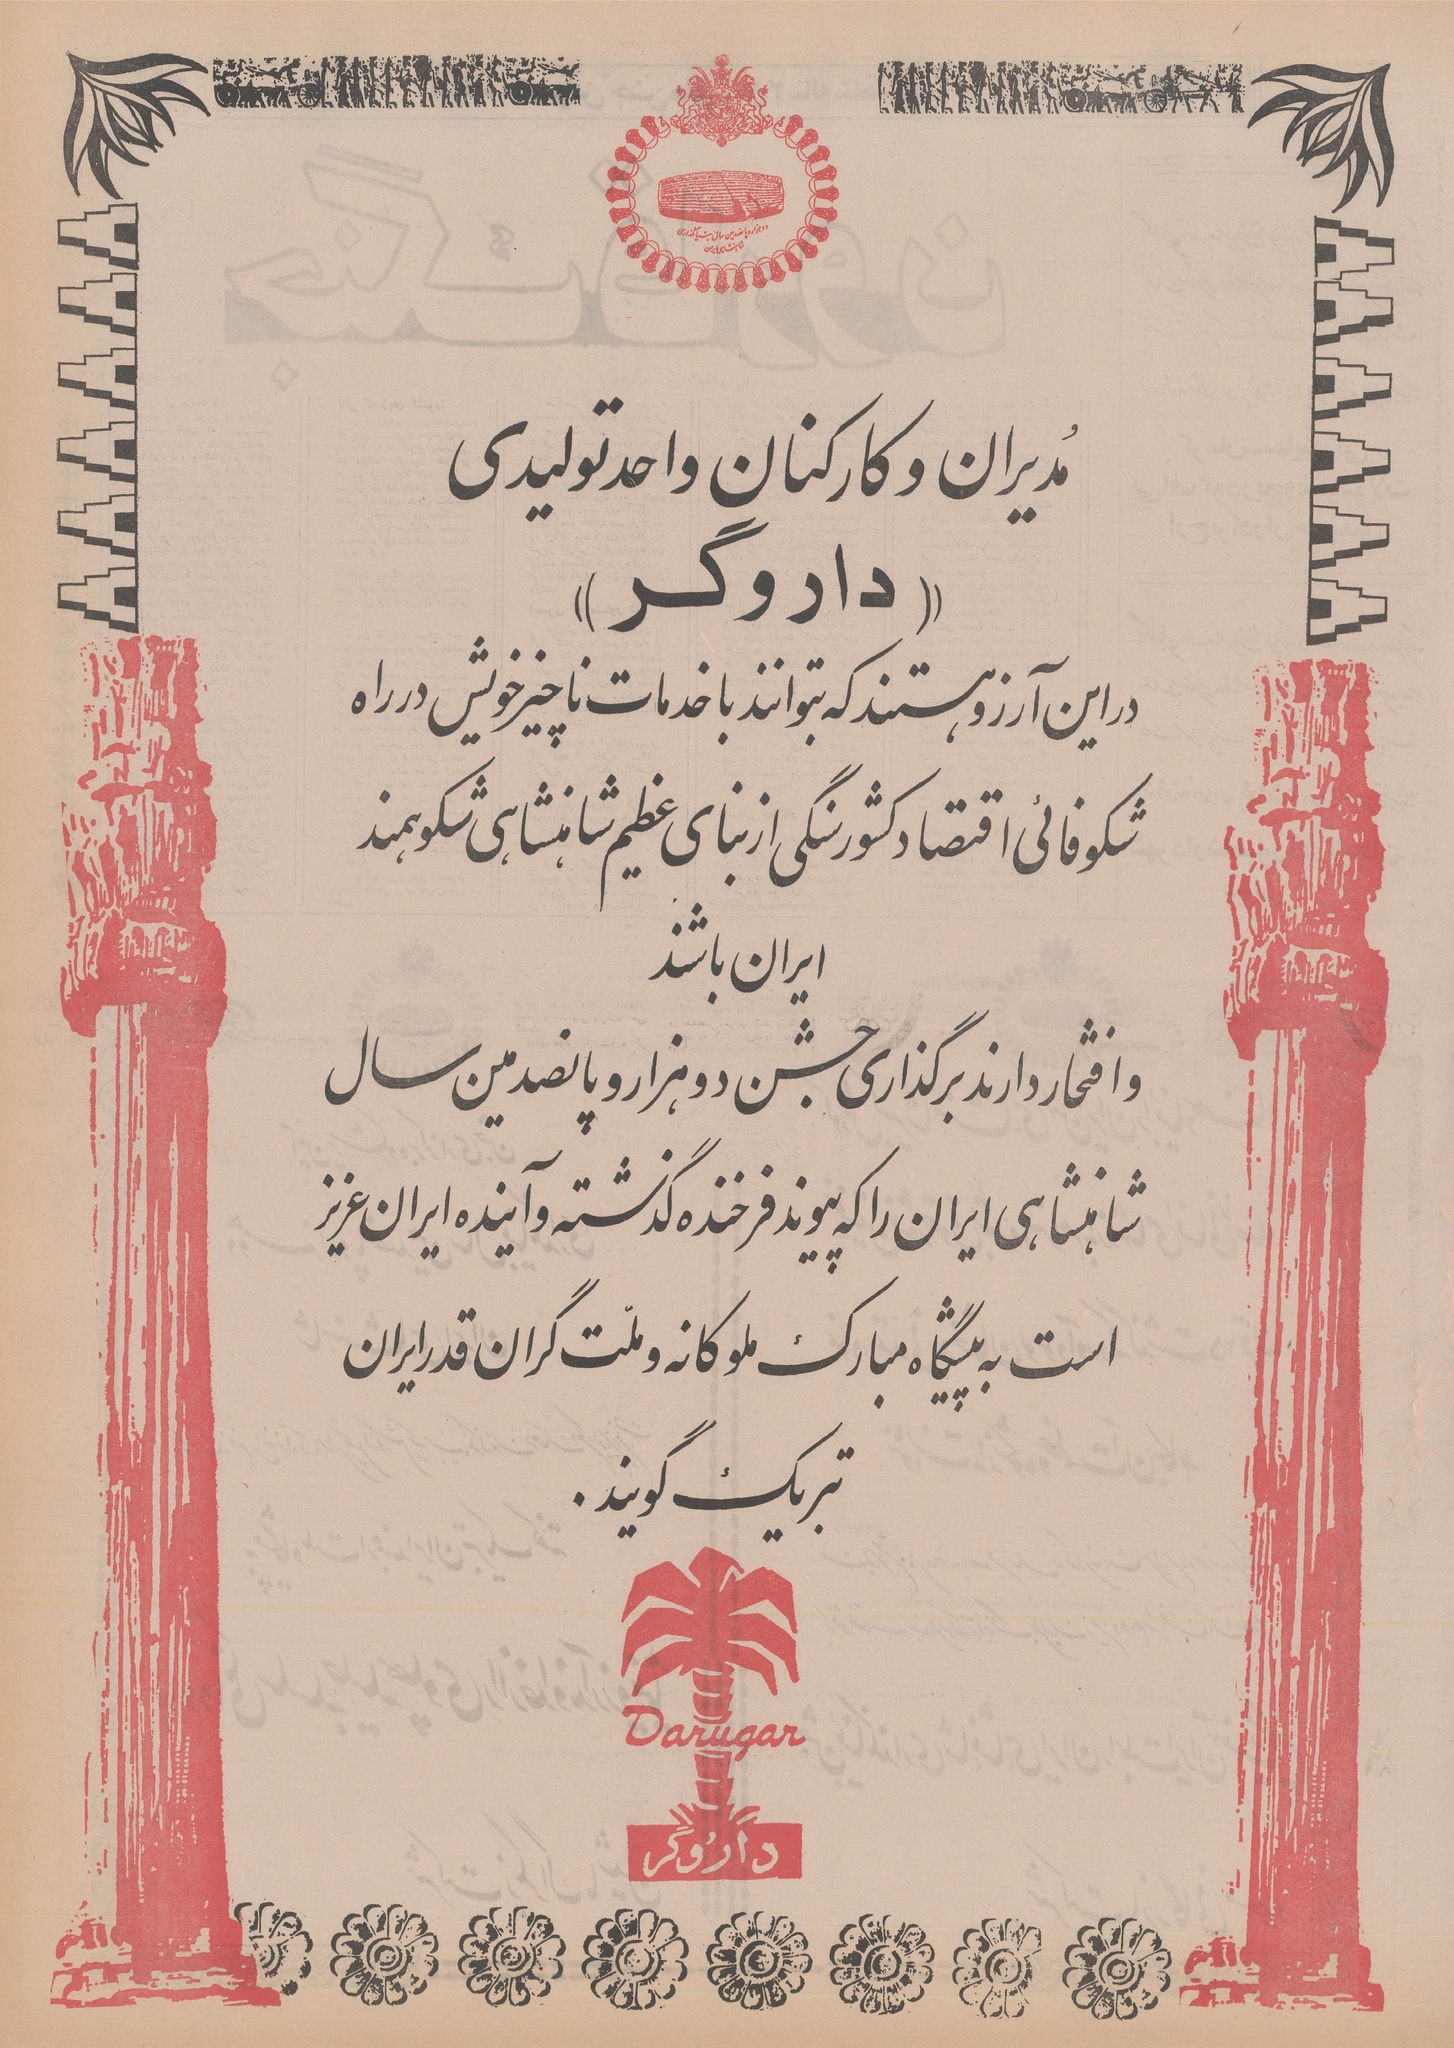 دو هزار و پانصدمین سال بنیانگذاری
شاهنشاهی ایران
مُدیران و کارکنان واحد تولیدی
((داروگر))
در این آرزو هستند که بتوانند با خدمات ناچیز خویش در راه
شکوفائی اقتصاد کشور سنگی از بنای عظیم شاهنشاهی شکوهمند
ایران باشند
و افتخار دارند برگذاری جشن دو هزار و پانصدمین سال
شاهنشاهی ایران را که پیوند فرخنده گذشته و آینده ایران عزیز
است به پیشگاه مبارک ملوکانه و ملّت گران قدر ایران
تبریک گویند.
Darugar
داروگر